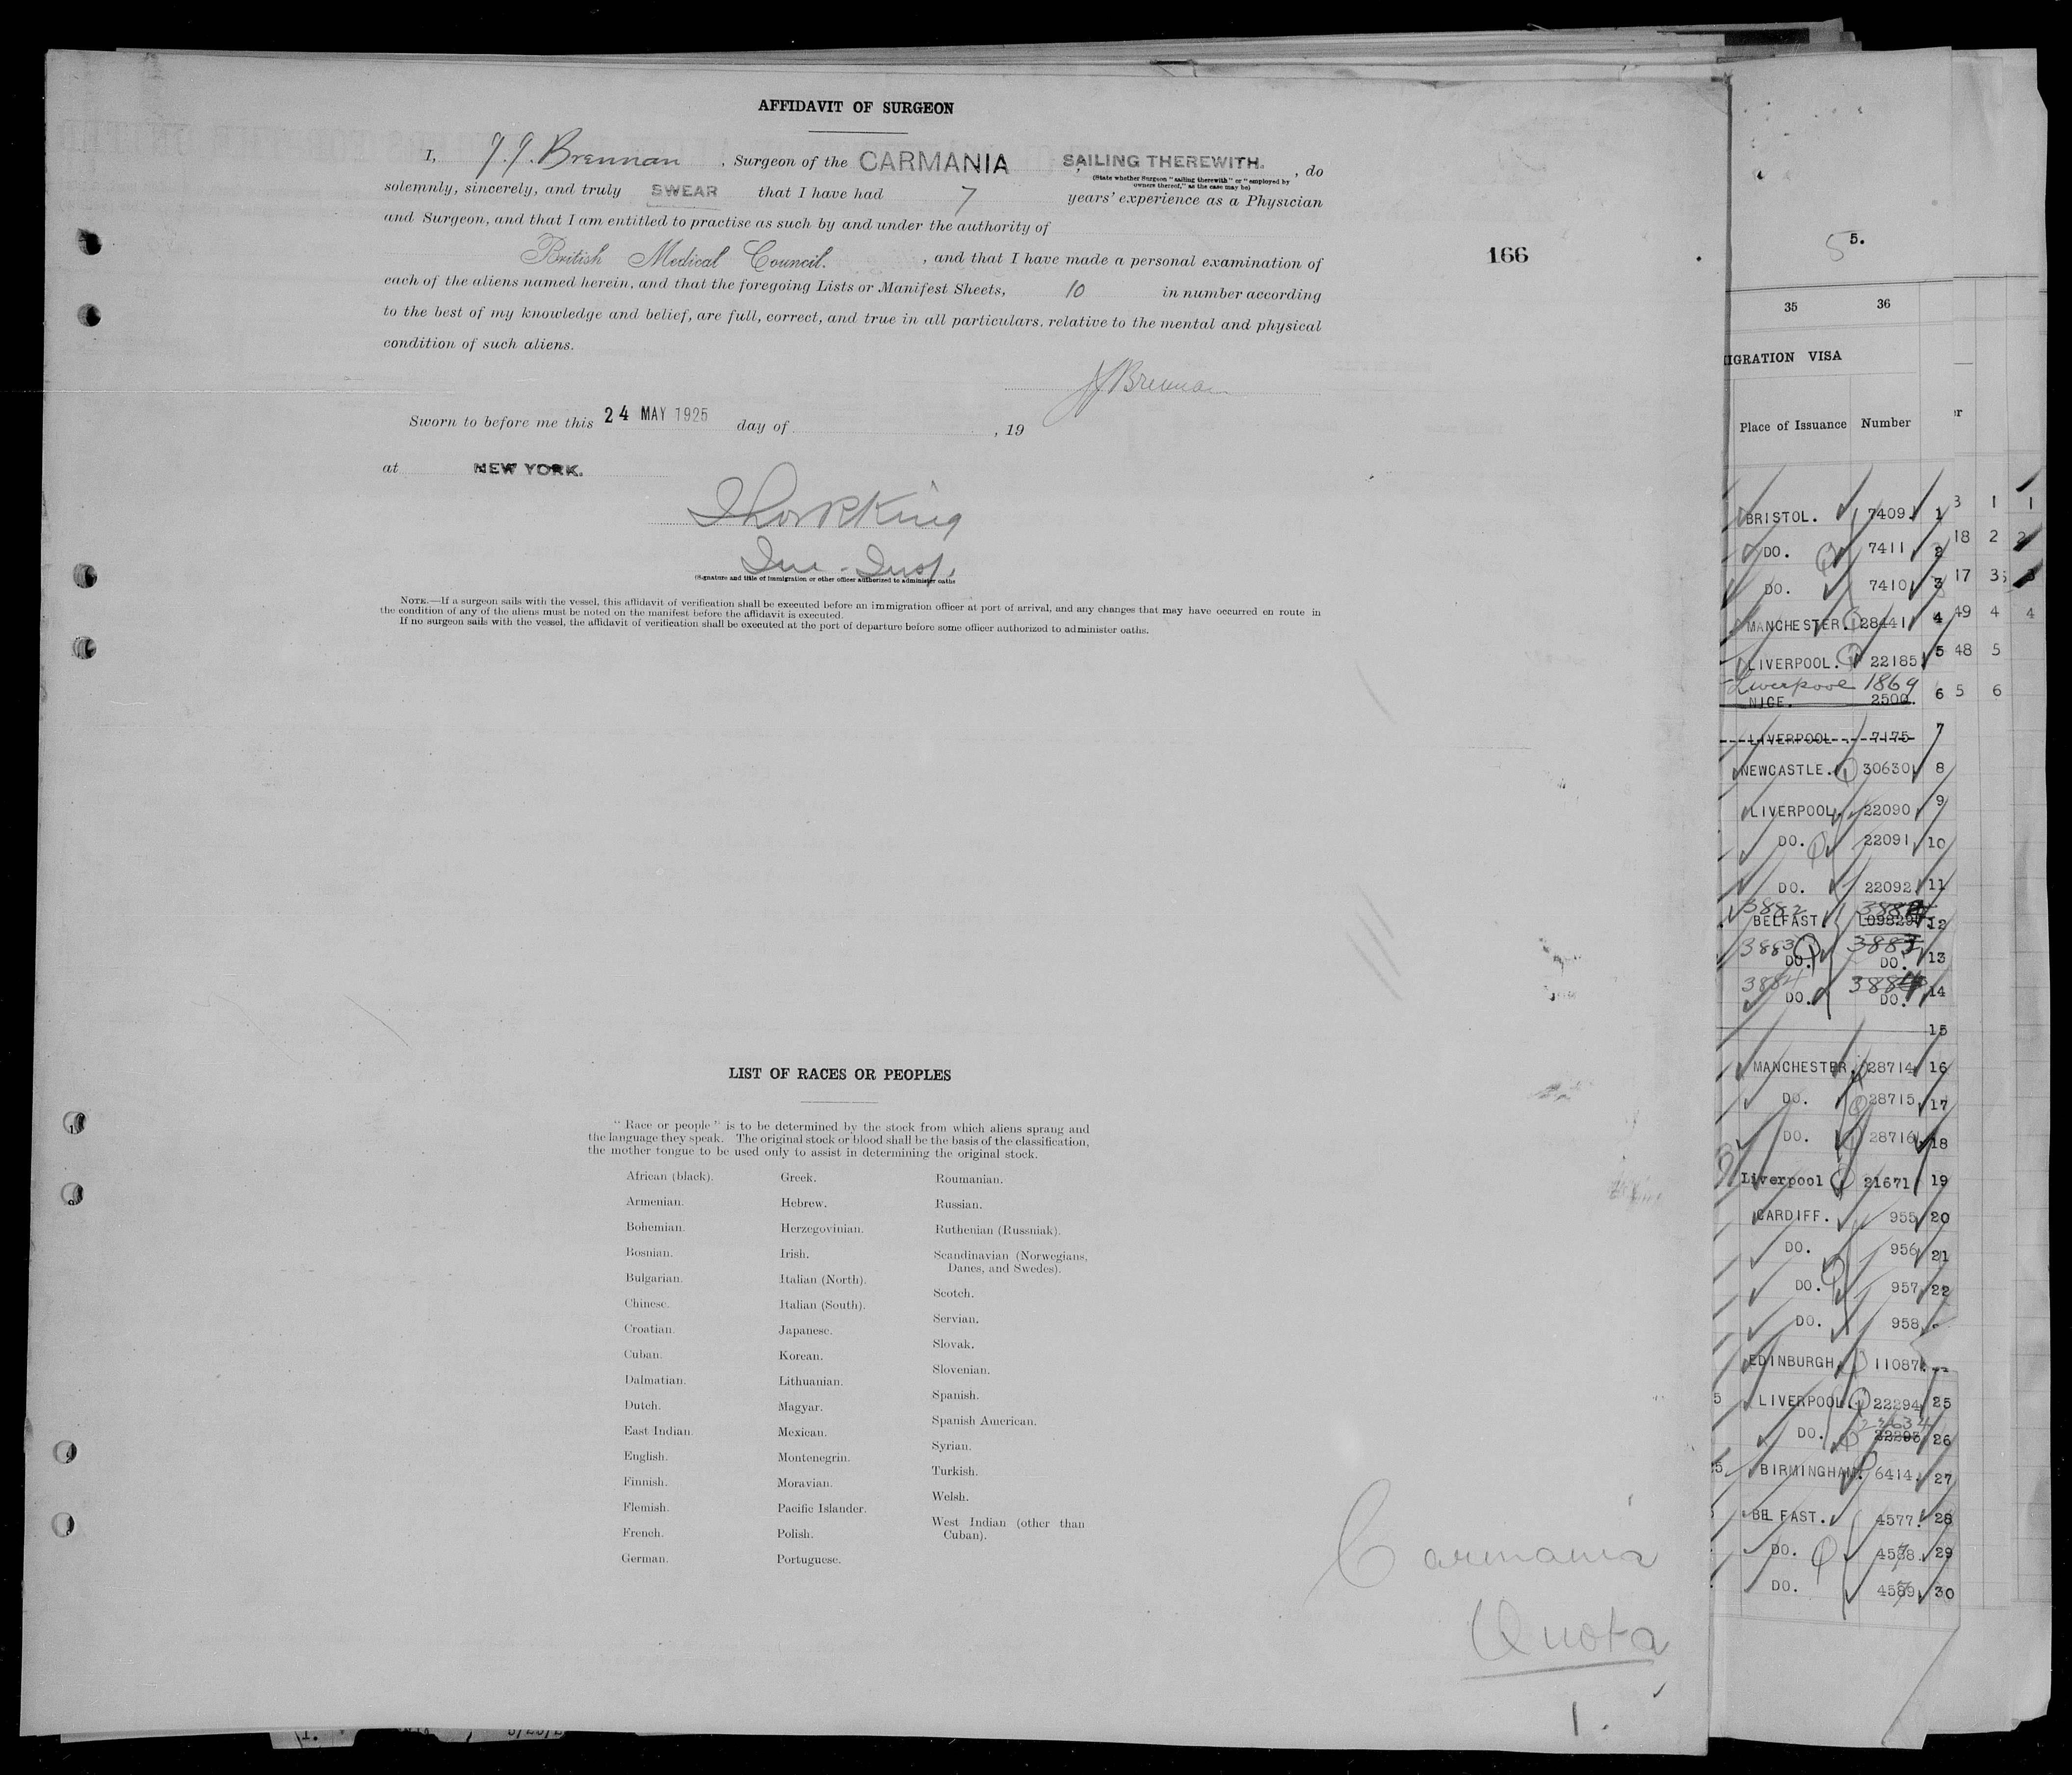 AFFIDAVIT OF SURGEON
I, J. J. Brennan, Surgeon of the CARMANIA SAILING THEREWITH. , do
(State whether Surgeon "sailing therewith" or "employed by
owners thereof," as the case may be)
solemnly, sincerely, and truly SWEAR that I have had 7 years' experience as a Physician
and Surgeon, and that I am entitled to practise as such by and under the authority of
British Medical Council. , and that I have made a personal examination of
166
each of the aliens named herein, and that the foregoing Lists or Manifest Sheets, 10 in number according
to the best of my knowledge and belief, are full, correct, and true in all particulars, relative to the mental and physical
condition of such aliens.
JJBrennan
Sworn to before me this 24 MAY 1925 day of , 19
at NEW YORK.
(Signature and title of immigration or other officer authorized to administer oaths
NOTE.—If a surgeon sails with the vessel, this affidavit of verification shall be executed before an immigration officer at port of arrival, and any changes that may have occurred en route in
the condition of any of the aliens must be noted on the manifest before the affidavit is executed.
If no surgeon sails with the vessel, the affidavit of verification shall be executed at the port of departure before some officer authorized to administer oaths.
LIST OF RACES OR PEOPLES
"Race or people" is to be determined by the stock from which aliens sprang and
the language they speak. The original stock or blood shall be the basis of the classification,
the mother tongue to be used only to assist in determining the original stock.
African (black).
Armenian.
Bohemian.
Bosnian.
Bulgarian.
Chinese.
Croatian.
Cuban.
Dalmatian.
Dutch.
East Indian.
English.
Finnish.
Flemish.
French.
German.
Greek.
Hebrew.
Herzegovinian.
Irish.
Italian (North).
Italian (South).
Japanese.
Korean.
Lithuanian.
Magyar.
Mexican.
Montenegrin.
Moravian.
Pacific Islander.
Polish.
Portuguese.
Roumanian.
Russian.
Ruthenian (Russniak).
Scandinavian (Norwegians,
Danes, and Swedes).
Scotch.
Servian.
Slovak.
Slovenian.
Spanish.
Spanish American.
Syrian.
Turkish.
Welsh.
West Indian (other than
Cuban).
Carmania
Quota
1.
5 5.
35 36
IGRATION VISA
Place of Issuance Number
BRISTOL. 7409 1
DO. 7411 2
DO. 7410 3
MANCHESTER. 28441 4
LIVERPOOL. 22185 5
Liverpool 1869
NICE. 2500. 6
LIVERPOOL 7175 7
NEWCASTLE. 30630 8
LIVERPOOL. 22090 9
DO. 22091 10
DO. 22092 11
3882
BELFAST 12
3883 3883
DO. DO. 13
3884 3884
DO. DO. 14
15
MANCHESTER. 28714 16
DO. 28715 17
DO. 28716 18
Liverpool 21671 19
CARDIFF. 955 20
DO. 956 21
DO. 957 22
DO. 958
EDINBURGH. 11087
LIVERPOOL. 22294 25
DO. 26
BIRMINGHAM. 6414. 27
BELFAST. 4577. 28
DO. 29
DO. 30
3 1 1
18 2 2
17 3 3
49 4 4
48 5
5 6